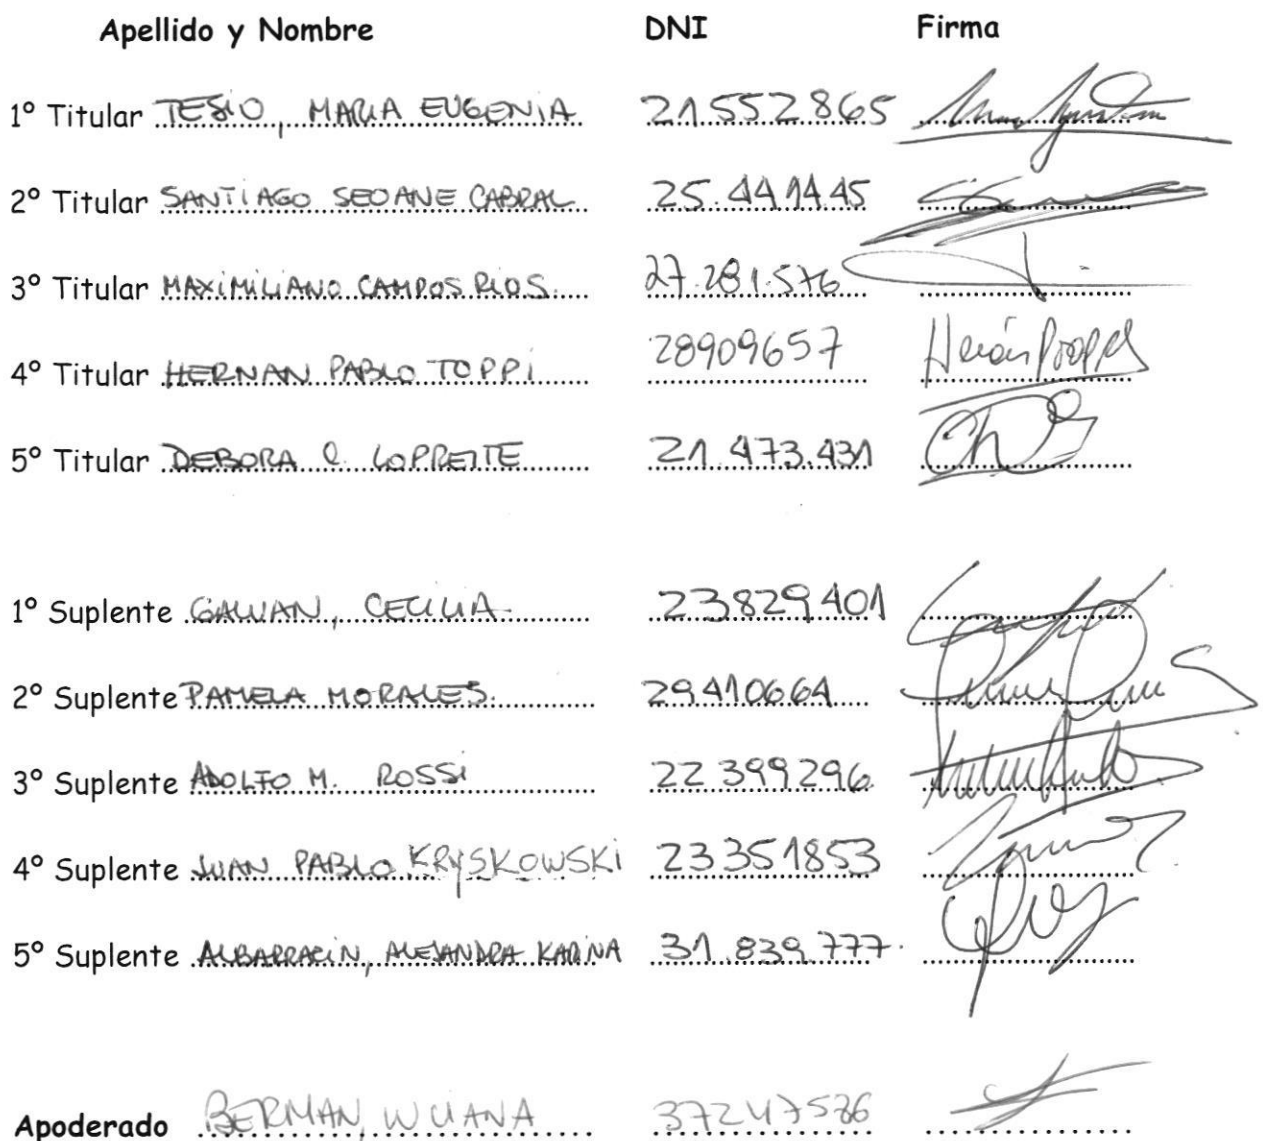 Apellido y Nombre DNI Firma
1º Titular TESIO, MARIA EUGENIA 21.552.865
2º Titular SANTIAGO SEOANE CABRAL 25.441.445
3º Titular MAXIMILIANO CAMPOS RIOS 27.281.576
4º Titular HERNAN PABLO TOPPI 28909657
5º Titular DEBORA C. LOPREITE 21.473.431
1º Suplente GALVAN, CECILIA 23829401
2º Suplente PAMELA MORALES 29.410664
3º Suplente ADOLFO M. ROSSI 22.399296
4º Suplente JUAN PABLO KRYSKOWSKI 23351853
5º Suplente ALBARRACIN, ALEJANDRA KARINA 31.839.777
Apoderado BERMAN, LUCIANA